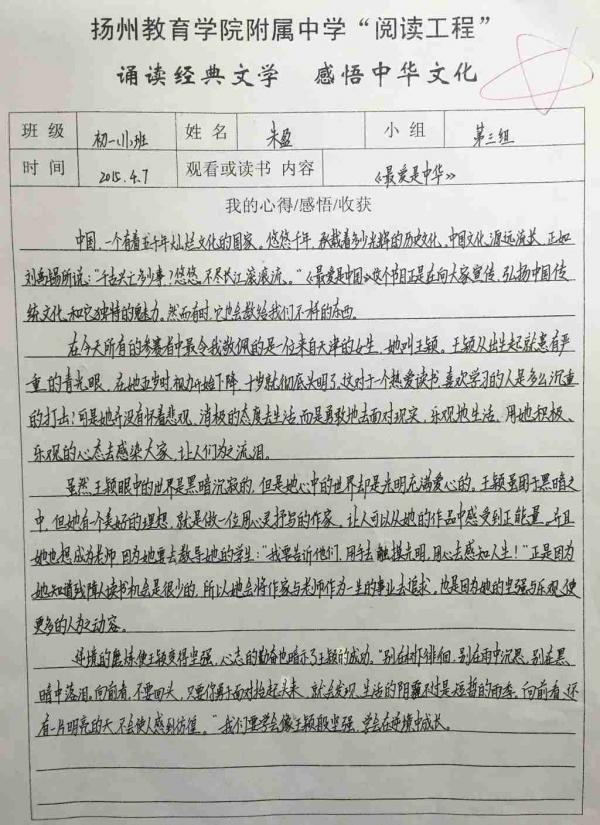 扬州教育学院附属中学“阅读工程”
诵读经典文学 感悟中华文化
班级 初一(1)班 姓名 朱盈 小组 第三组
时间 2015.4.7 观看或读书 内容 《最爱是中华》
我的心得/感悟/收获
中国,一个有着五千年灿烂文化的国家。悠悠千年,承载着多少光辉的历史文化。中国文化,源远流长,正如
刘禹锡所说:“千古兴亡多少事?悠悠,不尽长江滚滚流。”《最爱是中国》这个节目正是在向大家宣传、弘扬中国传
统文化,和它独特的魅力。然而有时,它也会教给我们不一样的东西。
在今天所有的参赛者中最令我敬佩的是一位来自天津的女生,她叫王颖。王颖从出生起就患有严
重的青光眼,在她五岁时视力开始下降,十岁就彻底失明了。这对于一个热爱读书,喜欢学习的人是多么沉重
的打击!可是她并没有怀着悲观、消极的态度去生活,而是勇敢地去面对现实,乐观地生活,用她积极、
乐观的心态去感染大家,让人们为之流泪。
虽然王颖眼中的世界是黑暗沉寂的,但是她心中的世界却是光明充满爱心的。王颖虽困于黑暗之
中,但她有个美好的理想,就是做一位用心灵抒写的作家,让人可以从她的作品中感受到正能量。并且
她也想成为老师,因为她要去教导她的学生:“我要告诉他们,用手去触摸光明,用心去感知人生!”正是因为
她知道残障人读书机会是很少的,所以她会将作家与老师作为一生的事业去追求。也是因为她的坚强与乐观,使
更多的人为之动容。
环境的磨炼使王颖变得坚强,心志的勤奋也暗示了王颖的成功。“别在树下徘徊,别在雨中沉思,别在黑
暗中落泪。向前看,不要回头,只要你勇于面对抬起头来,就会发现,生活的阴霾不过是短暂的雨季。向前看,还
有一片明亮的天,不会使人感到彷徨。”我们要学会像王颖般坚强,学会在逆境中成长。